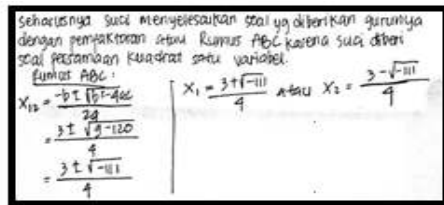 seharusnya Suci menyelesaikan soal yg diberikan gurunya
dengan pemfaktoran atau Rumus ABC karena suci diberi
soal persamaan kuadrat satu variabel.
Rumus ABC :
X₁₂ = -b ± √b²-4ac / 2a
= 3 ± √9-120 / 4
= 3 ± √-111 / 4
X₁ = 3+√-111 / 4 atau X₂ = 3-√-111 / 4